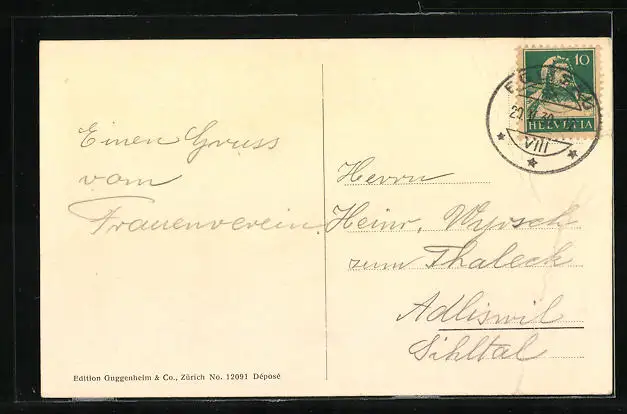 Einen Gruss
vom
Frauenverein
10
HELVETIA
VIII
Herrn
Heinr. Wyrsch
zum Thaleck
Adliswil
Sihltal
Edition Guggenheim & Co., Zürich No. 12091 Déposé